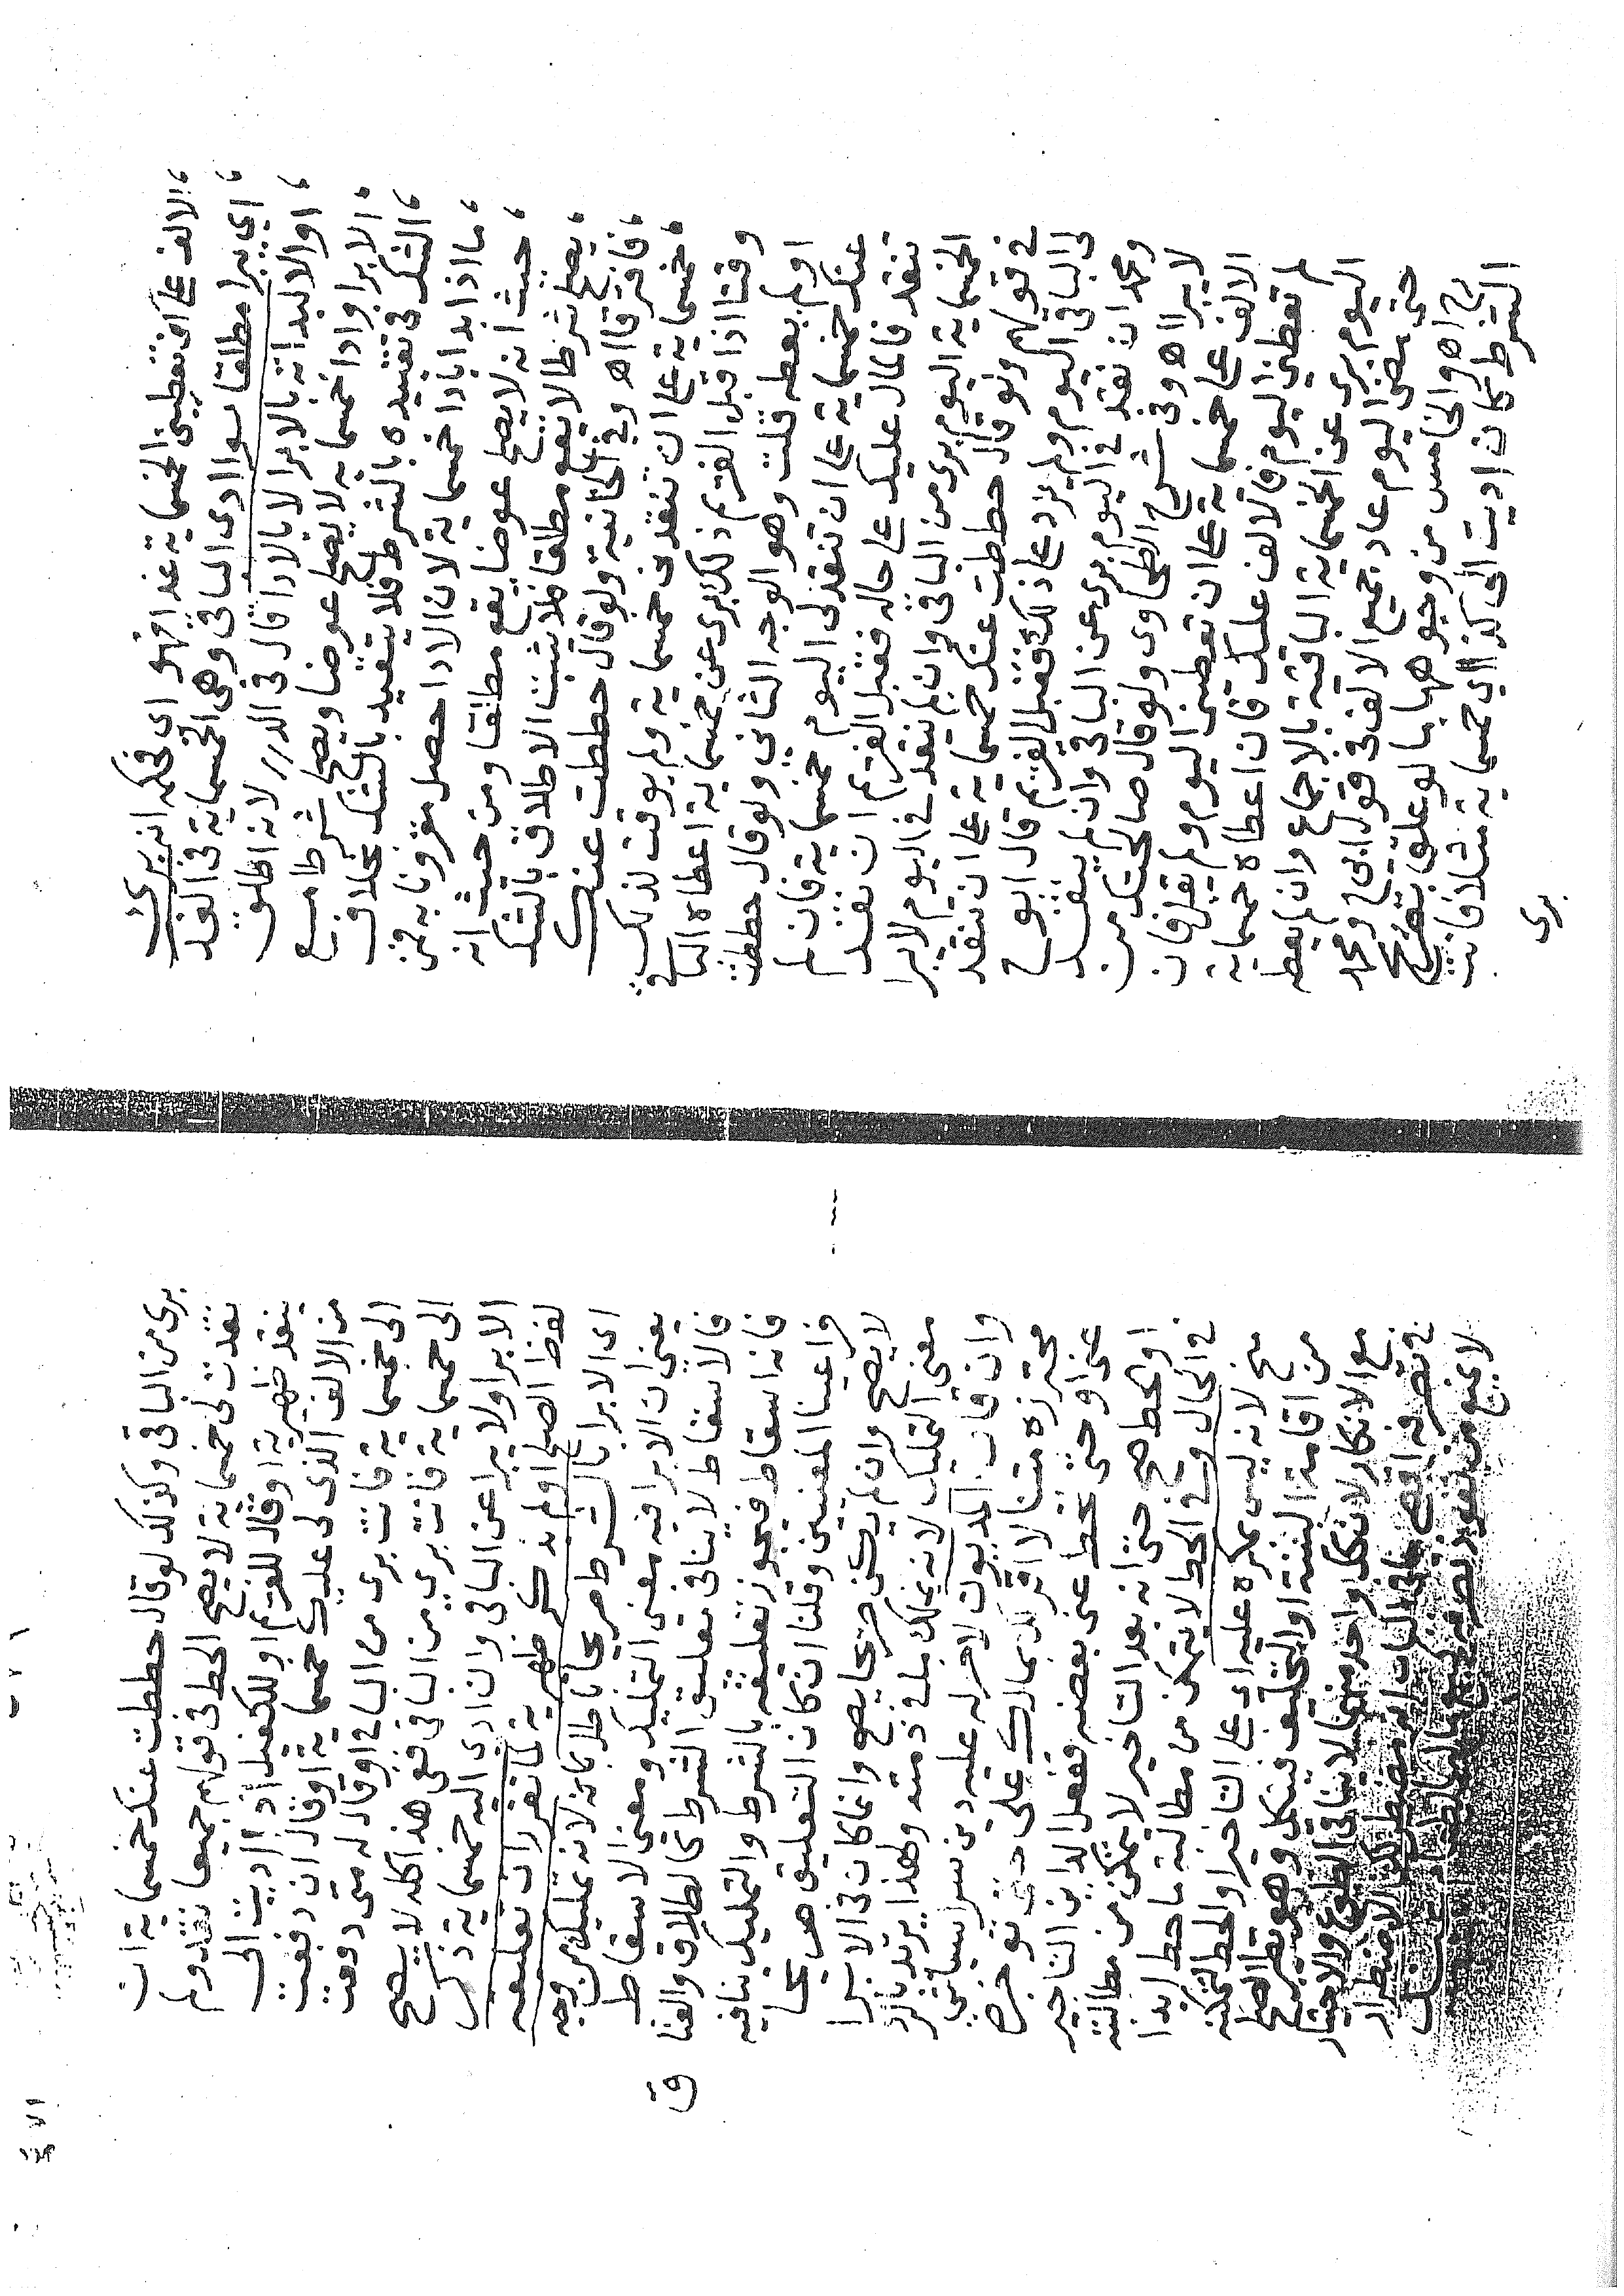 الالف على ان تعطيني الخمسماية غدا فهو اى فحكمه انه برى
اي يبرا مطلقا سوا ادى الباقي وهى الخمسماية فى الغد
اولا لبداته بالابرا لا بالادا قال فى الدرر لانه اطلق
الابرا وادا خمسماية لا يصلح عوضا ويصلح شرطا مع
الشك فى تقييده بالشرط فلا يتقيد بالشك بخلاف
ما اذا بدا بادا خمسماية لان الادا حصل مقرونا به فمن
حيث انه لا يصلح عوضا يقع مطلقا ومن حيث انه
يصلح شرطا لا يقع مطلقا فلا يثبت الاطلاق بالشك
فافترقا اه وفي الخانية ولو قال حططت عنك
خمسماية على ان تنقدنى خمسماية ولم يوقت لذلك
وقتا اذا قبل الغريم ذلك برى عن خمسماية اعطاه الباقي
اولم يعطه قلت وهو الوجه الثاني ولو قال حططت
عنك خمسماية على ان تنقدنى اليوم خمسماية فان لم
تنقد فالمال عليك على حاله فقبل الغريم ان نقد
الخمسماية اليوم برى من الباقي وان لم ينقد في اليوم لا يبرا
في قولهم ولو قال حططت عنك خمسماية على ان تنقد
لى الباقى اليوم ولم يزد على ذلك فقبل الغريم قال ابو ح
ومحمد ان نقد في اليوم برى عن الباقي وان لم ينقد
لا يبرا اه وفى شرح الطحاوى ولو قال صالحتك من
الالف على خمسماية على ان تعطني اليوم ولم يقل فان
لم تعطني اليوم فالالف عليك فان اعطاه خمسماية
اليوم برى عن الخمسماية الباقية بالاجماع وان لم يعطه
حتى مضى اليوم عاد جميع الالف فى قول ابى ح ومحمد
رح اه والخامس من وجوهها ما لو علق بصريح
الشرط كان اديت الى كذا اي خمسماية مثلا فانت
برى
برى من الباقى وكذلك لو قال حططت عنك خمسماية ان
نقدت لى خمسماية لا يصح الحط فى قولهم جميعا نقد او لم
ينقد ظهيرية او قال للغريم او للكفيل اذا اديت الى
من الالف الذى لى عليك خمسماية او قال ان دفعت
الى خمسماية فانت برى من الباقى او قال له متى دفعت
الى خمسماية فانت برى من الباقى ففى هذا كله لا يصح
الابرا ولا يبرا عن الباقى وان ادى اليه خمسماية ذكر
لفظ الصلح اولم يذكر ظهيرية لما تقرر ان تعليقه
اى الابرا بالشرط صريحا باطل لانه تمليك من وجه
يعنى ان الابرا فيه معنى التمليك ومعنى الاسقاط
فالاسقاط لا ينافى تعليق الشرط كالطلاق والعتاق
فانه اسقاط فيجوز تعليقه بالشرط والتمليك ينافيه
فراعينا المعنيين وقلنا ان كان التعليق صريحا
لا يصح وان لم يكن صريحا يصح وانما كان فى الابرا
معنى التمليك لانه يملك ما في ذمته ولهذا يرتد بالرد
وان قال المديون لاخر له عليه دين سرا سياتي
محترزه متنا لا اقر لك بمالك على حتى توخره
عنى او حتى تحط عنى بعضه ففعل الداين التاخير
او الحط صح حتى انه بعد التاخير لا يتمكن من مطالبته
في الحال وفي الحط لا يتمكن من مطالبة ما حط ابدا
صح لانه ليس بمكره عليه اى على التاخير او الحط لتمكنه
من اقامة البينة او التحليف فينكل وهو نظير الصلح
مع الانكار لان كل واحد منهما لا ينافى الطوع والاختيار
في تصرفه اقصى ما فى الباب انه مضطر لكن الاضطرار
لا يمنع من نفوذ تصرفه